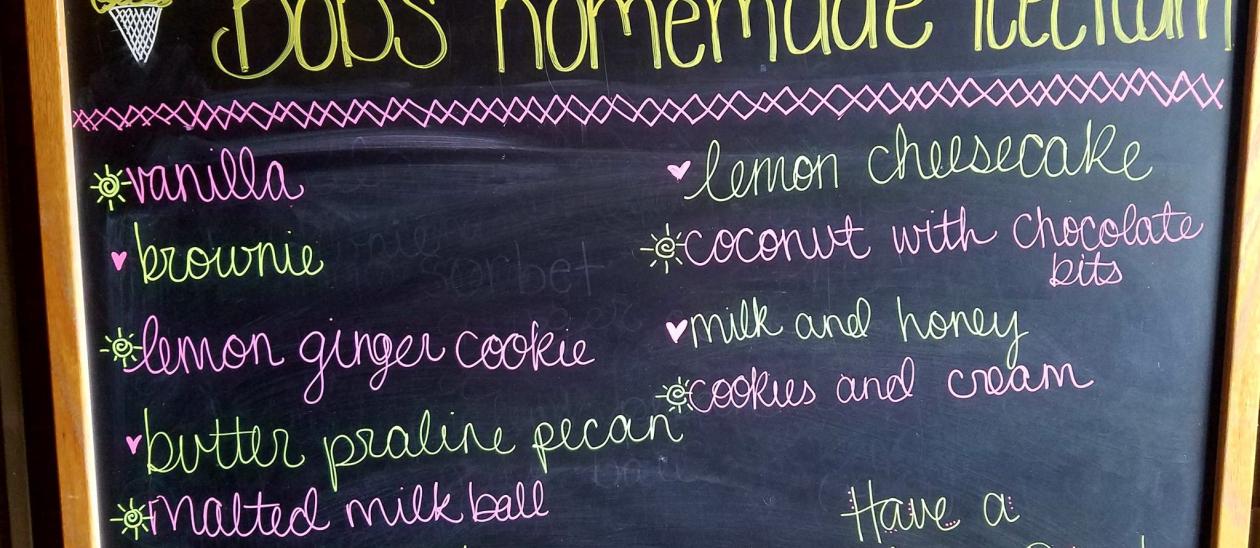 Bobs homemade icecream
vanilla
brownie
lemon ginger cookie
butter praline pecan
malted milk ball
lemon cheesecake
coconut with chocolate
bits
milk and honey
cookies and cream
sorbet
Have a